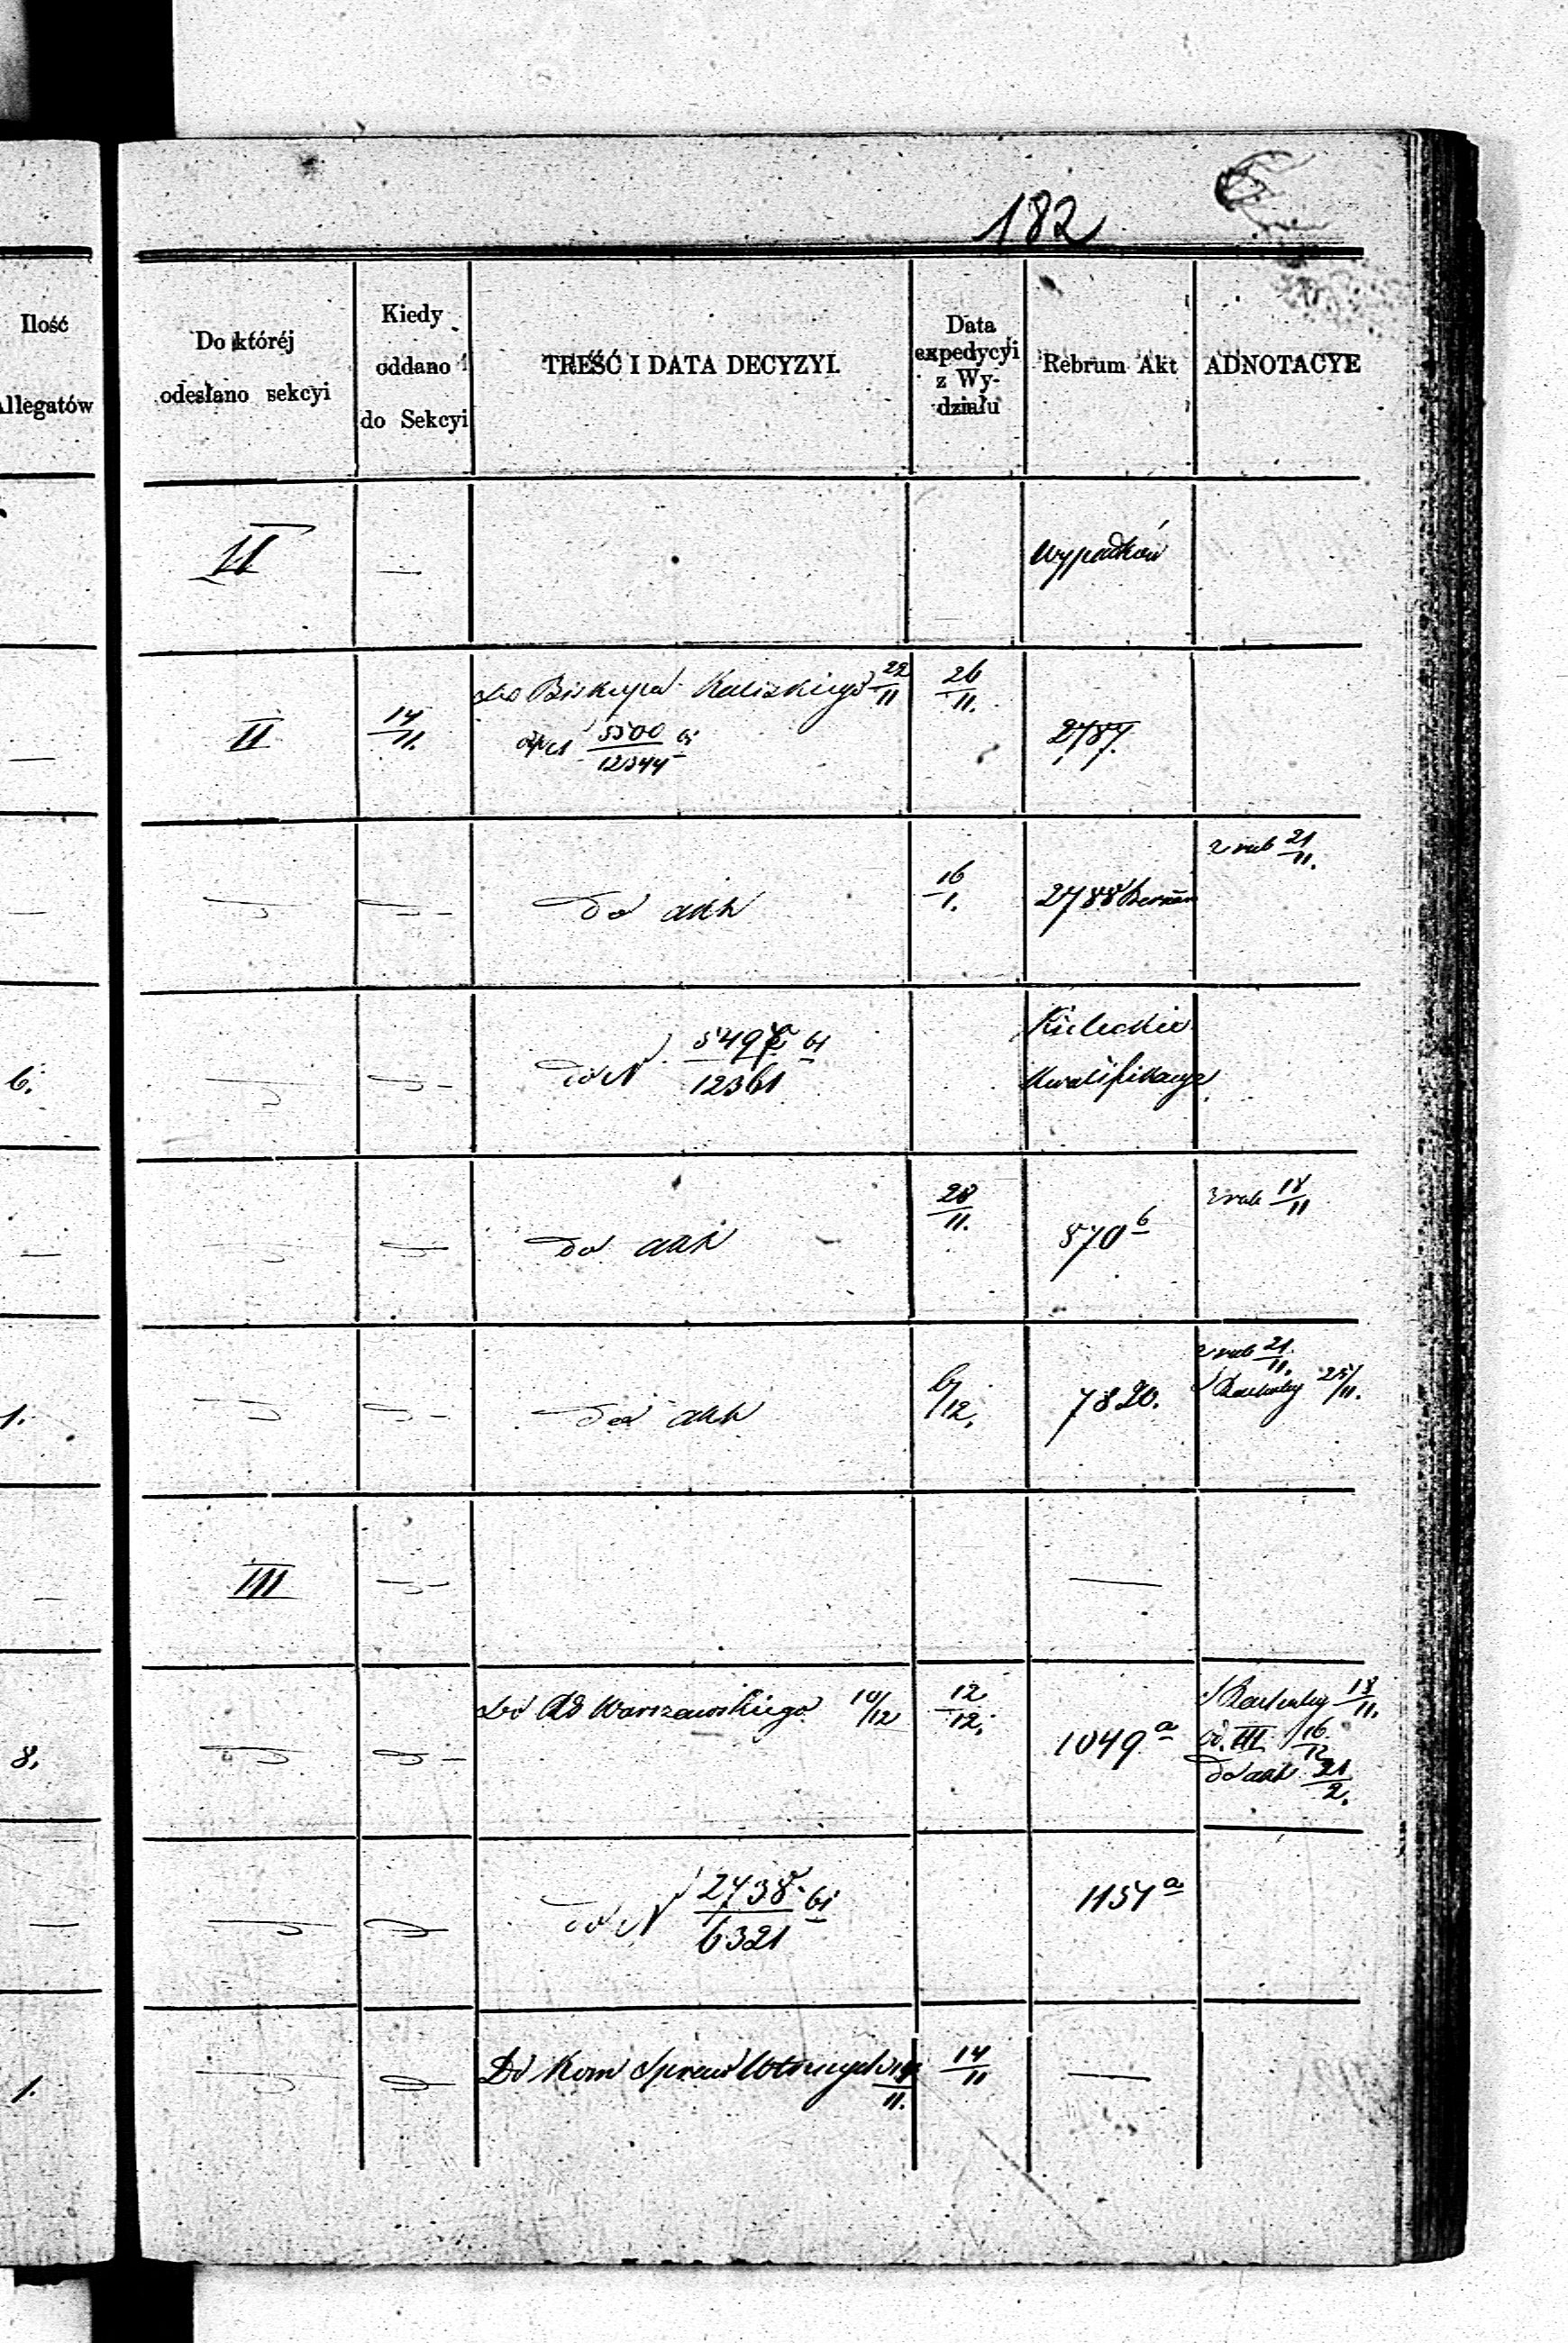 182
Ilość
Allegatów
Do któréj
odesłano sekcyi
Kiedy
oddano
do Sekcyi
TREŚĆ I DATA DECYZYI.
Data
expedycyi
z Wy-
działu
Rebrum Akt
ADNOTACYE
II
—
Wypadków
—
II
14/11.
Do Biskupa Kaliskiego 22/11
5500/12344
26/11.
2787.
—
Do akt
16/1.
2788
z rub 21/11.
6.
Do N 12361
Kieleckie
Kwalifikacye
—
Do akt
28/11.
570 b
z rub 18/11
1.
Do akt
6/12.
7820.
z rub 21/11.
25/11.
—
III
—
8.
Do AO Warszawskiego 10/12
12/12.
1049 a
18/11.
od. III 16/12
Do akt 21/2.
—
Do N 2738/6321
1151 a
1.
Do Kom Spraw
11.
14/11
—